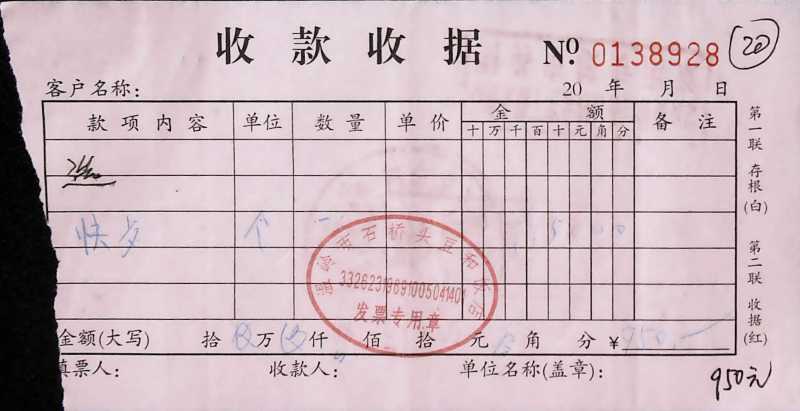 收款收据 No 0138928 20
客户名称： 20 年 月 日
款项内容 单位 数量 单价 金额 备注
十万千百十元角分
个
温岭市石桥头
3326231969100504140
发票专用章
金额(大写) 拾 万 仟 佰 拾 元 角 分 ￥950.-
填票人： 收款人： 单位名称(盖章)：
950元
第一联 存根(白)
第二联 收据(红)